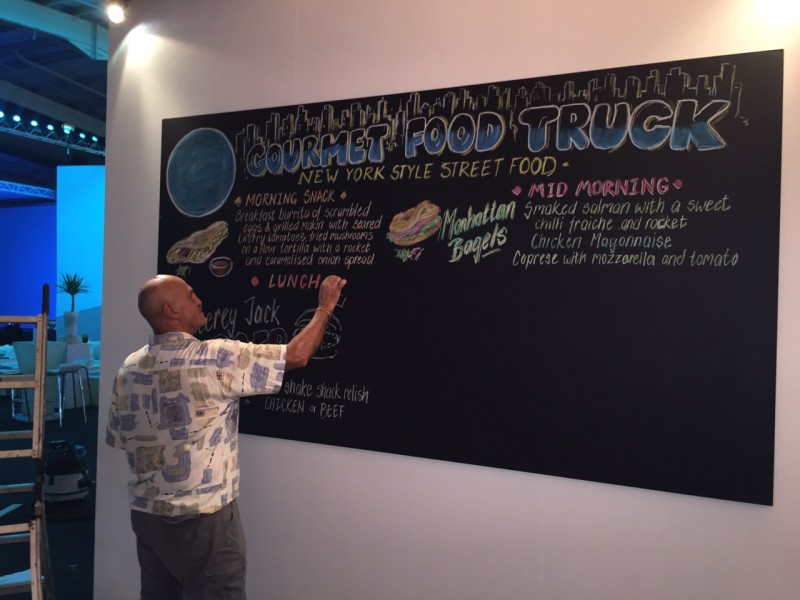 GOURMET FOOD TRUCK
NEW YORK STYLE STREET FOOD
MORNING SNACK
Breakfast burrito of scrambled
eggs & grilled with seared
cherry tomatoes, fried mushrooms
in a flour tortilla with a rocket
and caramelised onion spread
LUNCH
erey Jack
shake shack relish
CHICKEN or BEEF
Manhattan
Bagels
MID MORNING
Smoked salmon with a sweet
chilli fraiche and rocket
Chicken Mayonnaise
Coprese with mozzarella and tomato